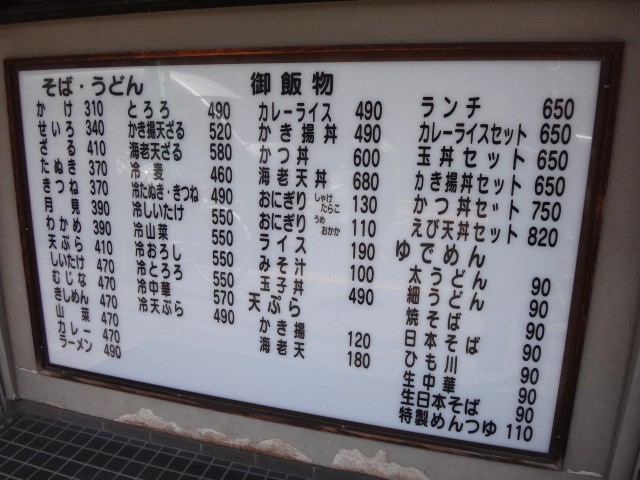 そば・うどん
かけ 310
せいろ 340
ざる 410
たぬき 370
きつね 370
月見 390
わかめ 390
天ぷら 410
しいたけ 470
むじな 470
きしめん 470
山菜 470
カレー 470
ラーメン 490
とろろ 490
かき揚天ざる 520
海老天ざる 580
冷麦 460
冷たぬき・きつね 490
冷しいたけ 550
冷山菜 550
冷おろし 550
冷とろろ 550
冷中華 570
冷天ぷら 490
御飯物
カレーライス 490
かき揚丼 490
かつ丼 600
海老天丼 680
おにぎり しゃけ たらこ 130
おにぎり うめ おかか 110
ライス 190
みそ汁 100
玉子丼 490
天ぷら
かき揚 120
海老天 180
ランチ 650
カレーライスセット 650
玉丼セット 650
かき揚丼セット 650
かつ丼セット 750
えび天丼セット 820
ゆでめん
太うどん 90
細うどん 90
焼そば 90
日本そば 90
ひも川 90
生中華 90
生日本そば 90
特製めんつゆ 110